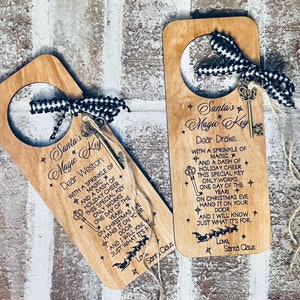 Santa's
Magic Key
Dear Weston,
WITH A SPRINKLE OF
MAGIC
AND A DASH OF
HOLIDAY CHEER
THIS SPECIAL KEY
ONLY WORKS
ONE DAY OF THE
YEAR
ON CHRISTMAS EVE
HANG IT ON YOUR
DOOR
AND I WILL KNOW
JUST WHAT IT'S FOR.
Love,
Santa Claus
Santa's
Magic Key
Dear Drake,
WITH A SPRINKLE OF
MAGIC
AND A DASH OF
HOLIDAY CHEER
THIS SPECIAL KEY
ONLY WORKS
ONE DAY OF THE
YEAR
ON CHRISTMAS EVE
HANG IT ON YOUR
DOOR
AND I WILL KNOW
JUST WHAT IT'S FOR.
Love,
Santa Claus